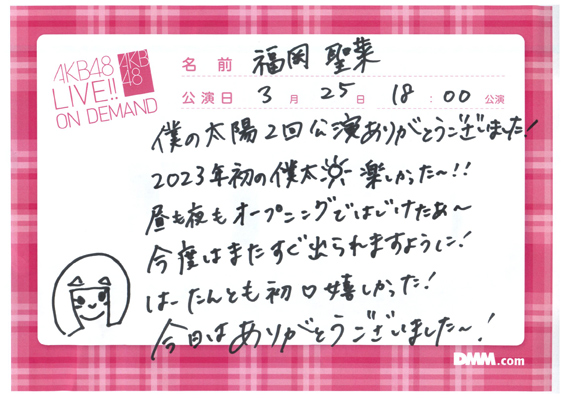 AKB48
LIVE!!
ON DEMAND
AKB
48
名前 福岡 聖菜
公演日 3月 25日 18:00 公演
僕の太陽2回公演ありがとうございました!
2023年初の僕太 楽しかった〜!!
昼も夜もオープニングではじけたぁ〜
今度はまたすぐ出られますように!
はーたんとも初♡嬉しかった!
今日はありがとうございました〜!
DMM.com